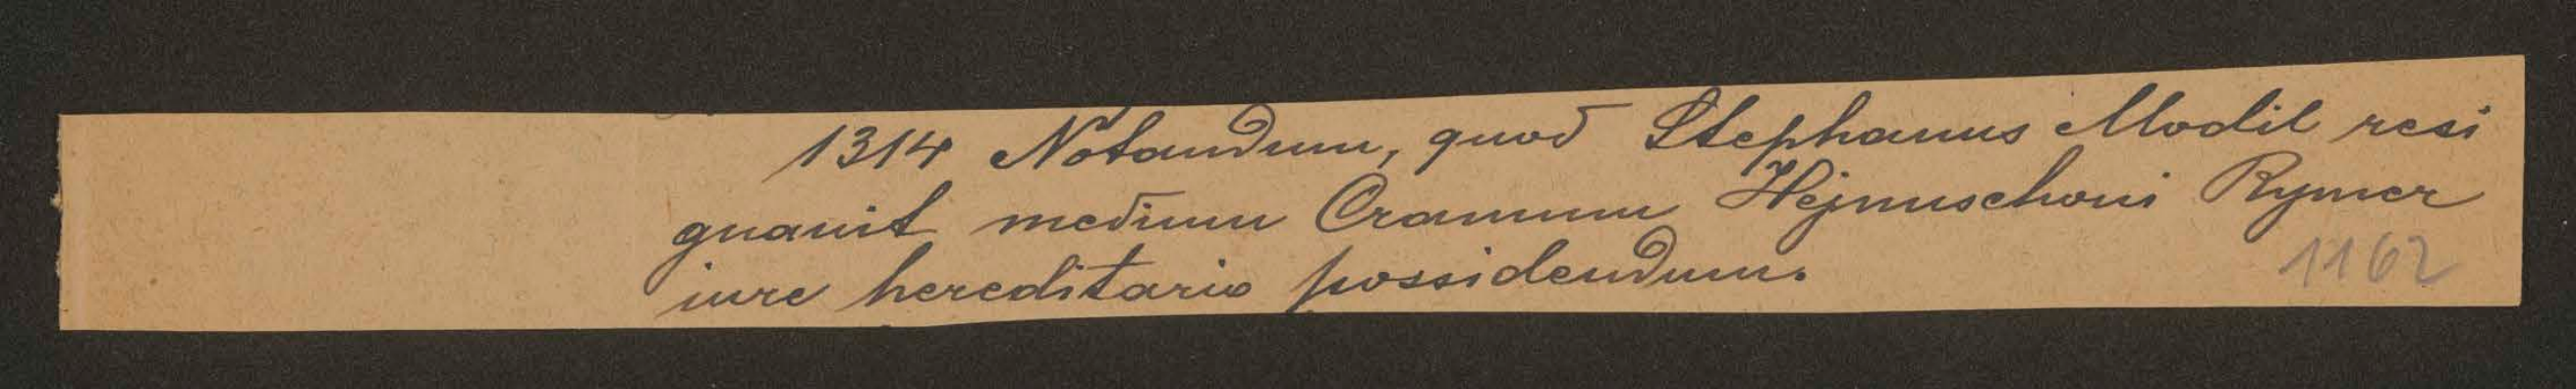 1314 Notandum, quod Stephanus Modil resi
gnauit medium Cramum Hejnuschoni Rymer
iure hereditario possidendum.
1162